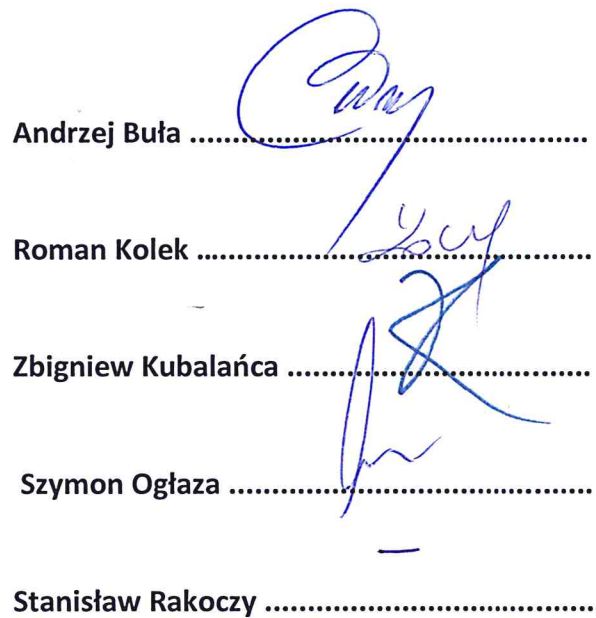 Andrzej Buła ................................................
Roman Kolek ...............................................
Zbigniew Kubalańca ....................................
Szymon Ogłaza ...........................................
Stanisław Rakoczy .......................................